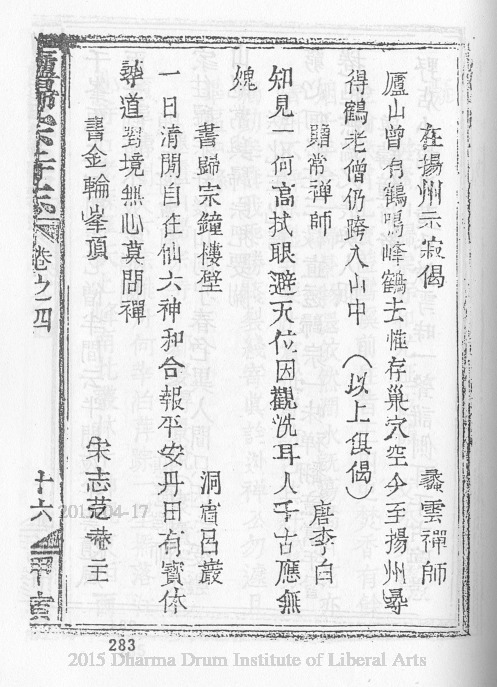 在揚州示寂偈 蠡雲禪師
廬山曾有鶴鳴峰鶴去惟存巢穴空今至揚州尋
得鶴老僧仍跨入山中(以上俱偈)
常禪師 唐李白
知見一何高拭眼避天位因觀洗耳人千古應無
愧
書歸宗鐘樓壁 洞賓呂巖
一日清閒自在仙六神和合報平安丹田有寶休
尋道對境無心莫問禪
書金輪峯頂 宋志芝菴主
卷之四 十六
2015-04-17
283
2015 Dharma Drum Institute of Liberal Arts